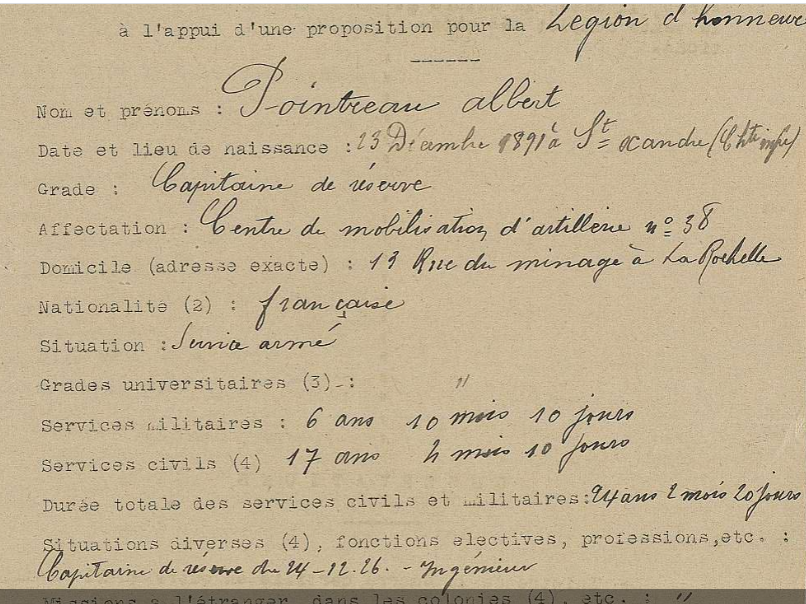 à l'appui d'une proposition pour la Légion d'honneur
Nom et prénoms : Pointreau albert
Date et lieu de naissance : 23 Décembre 1891 à St xandre (Chte infre)
Grade : Capitaine de réserve
Affectation : Centre de mobilisation d'artillerie n° 38
Domicile (adresse exacte) : 13 Rue du minage à La Rochelle
Nationalité (2) : française
Situation : Service armé
Grades universitaires (3) : "
Services militaires : 6 ans 10 mois 10 jours
Services civils (4) 17 ans 4 mois 10 jours
Durée totale des services civils et militaires: 24 ans 2 mois 20 jours
Situations diverses (4), fonctions electives, professions, etc. :
Capitaine de réserve du 24-12.26. - Ingénieur
Missions à l'étranger, dans les colonies (4), etc. : "